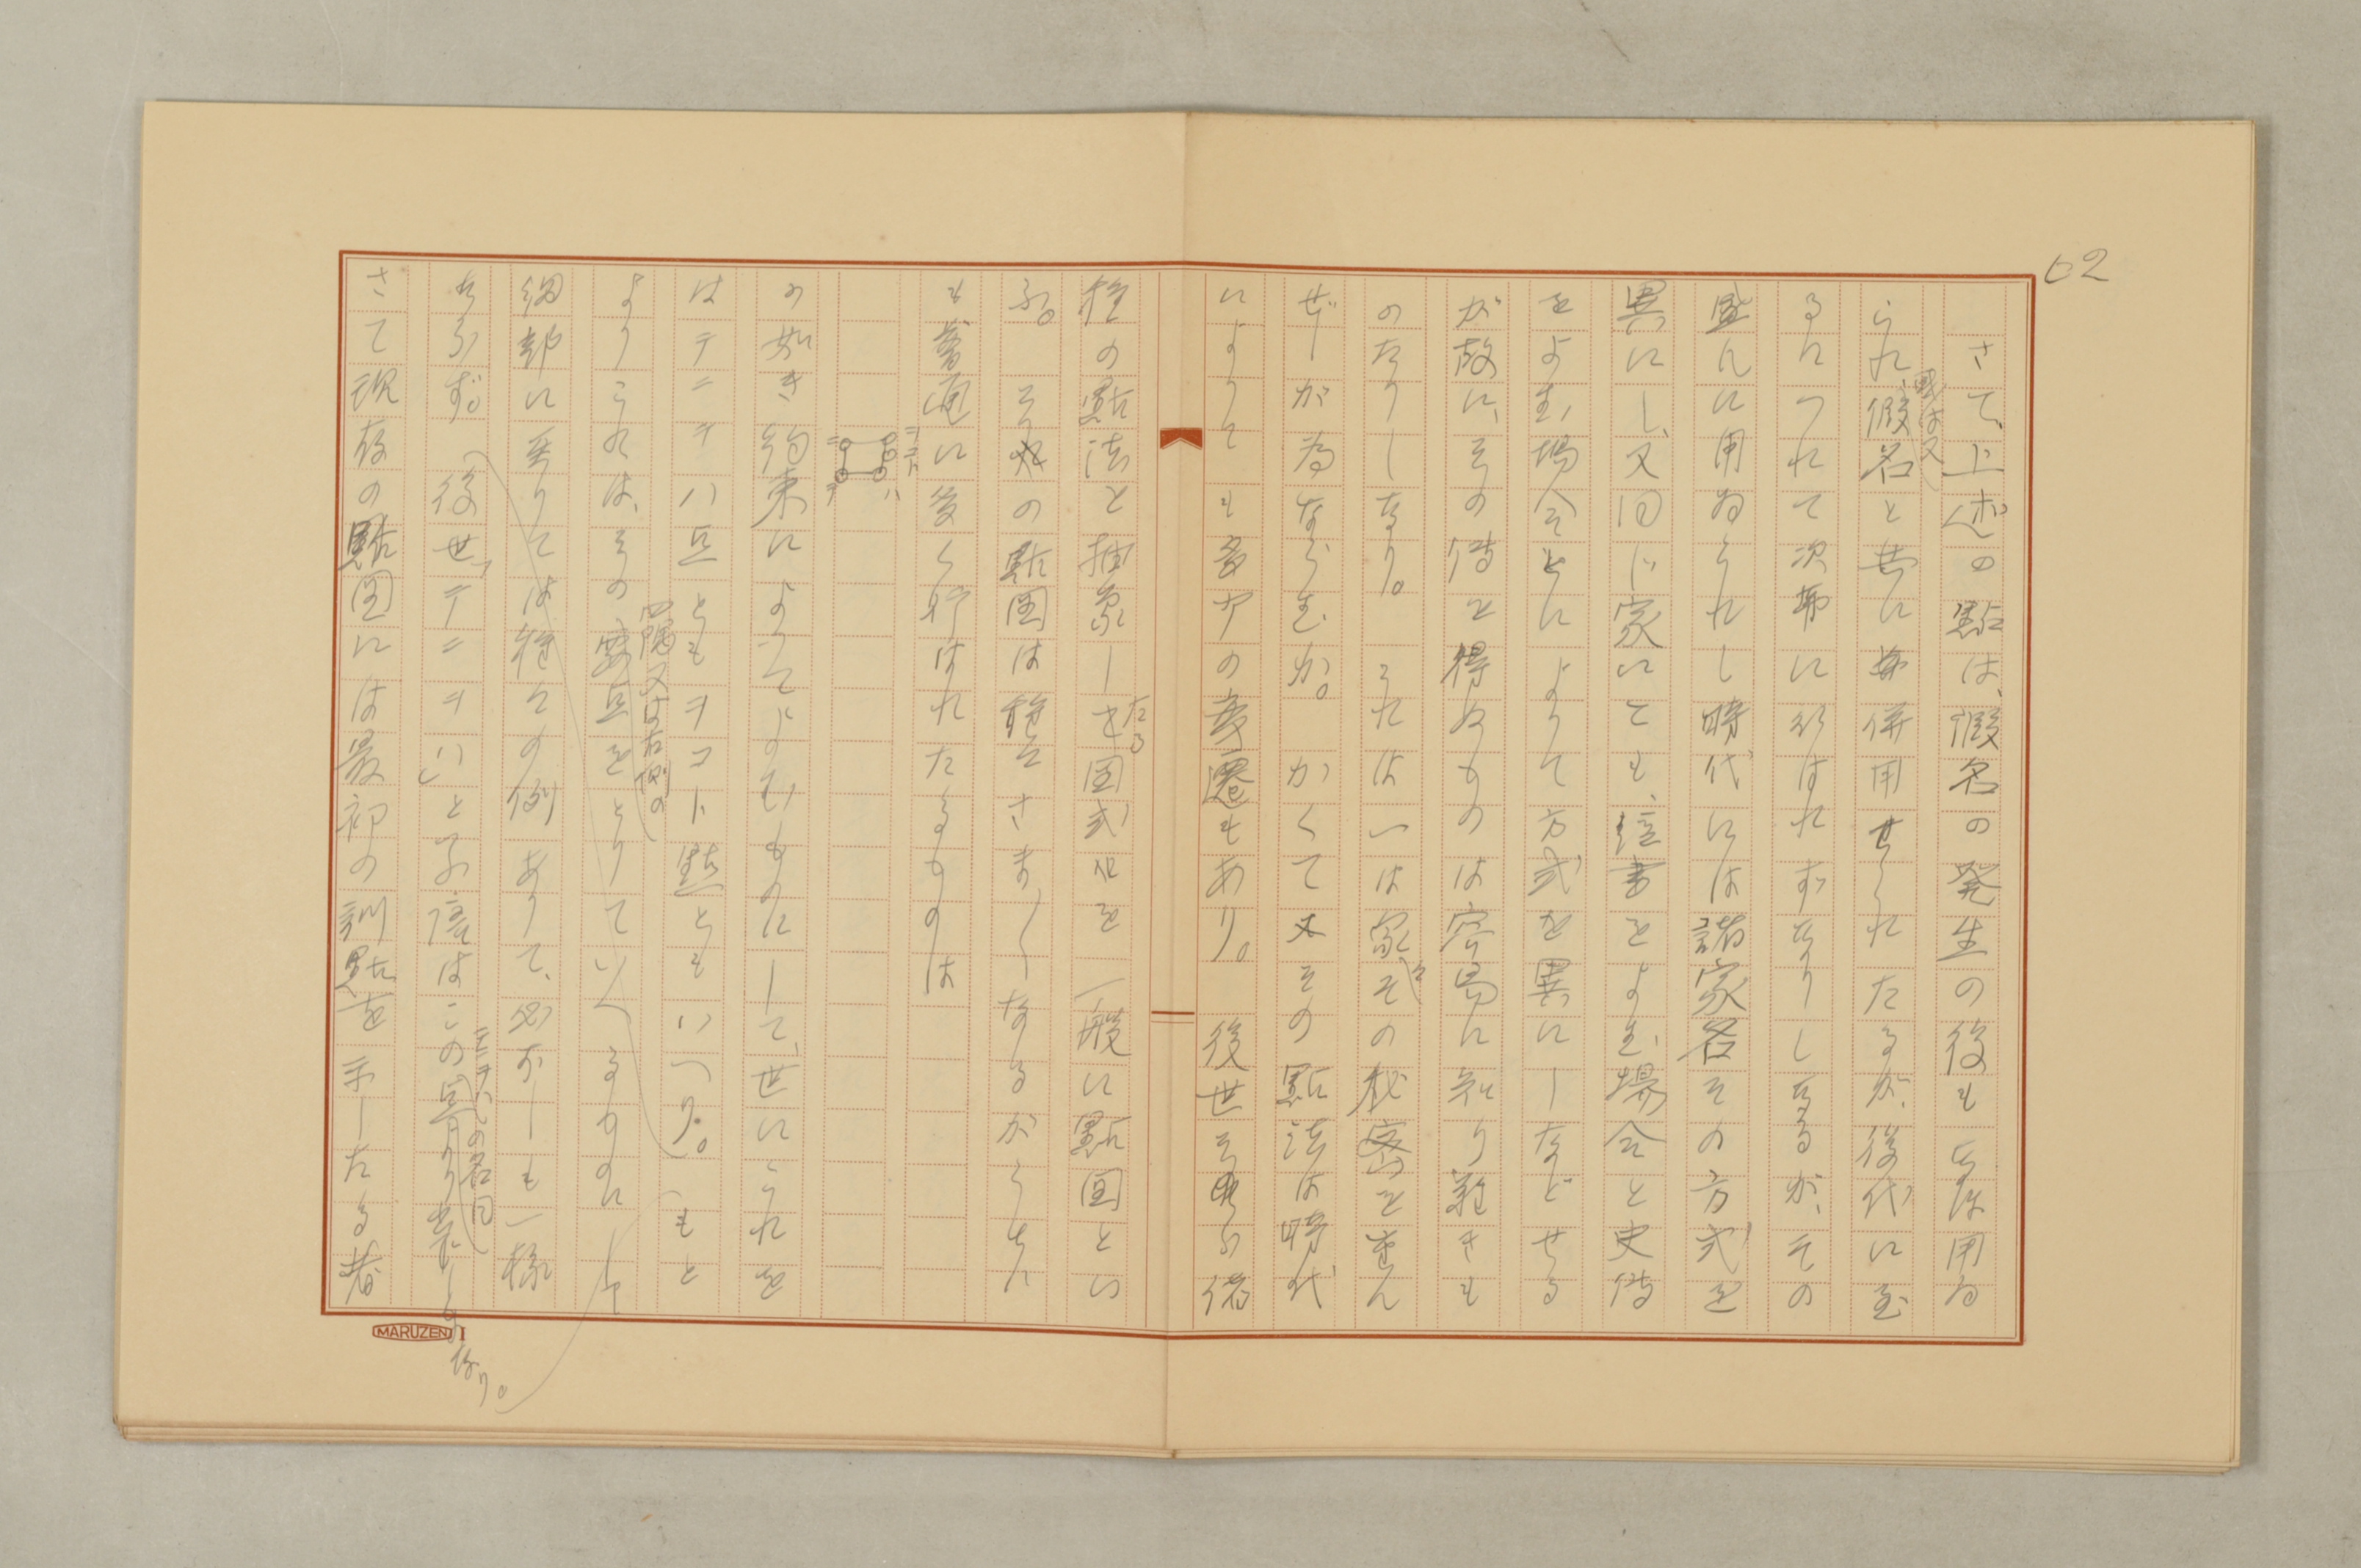 62
さて、上述の點は、假名の発生の後もなほ用ゐ
られ、或は又假名と共に併用せられたるが、後代に至
るにつれて次第に行はれずなりしなるが、その
盛んに用ゐられし時代には諸家各その方式を
異にし、又同じ家にても、經書をよむ場合と史傳
をよむ場合とによりて方式を異にしなどせる
が故に、その傳を得ぬものは容易に知り難きも
のたりしなり。これは一は家々の秘密を重ん
ぜしが為ならむか。かくて又その點法は時代
によりても多少の変遷もあり。後世それら諸
種の點法を抽象したる図式を一般に點圖とい
ふ。その點圖は種々さま〴〵なるがうちに
も普通に多く行はれたるものは
ニ
ヲコト
テ
ハ
の如き約束によつてよむものにして、世にこれを
はテニヲハ点ともヲコト點ともいへり。もと
よりこれは、その四隅又は右側の要点をとりていへるものにして
細部に至りては種々の例ありて、必ずしも一様
ならず。後世「テニヲハ」と
テニヲハの名目はこの点より来しなり。
さて現存の點圖には最初の訓點を示したる者
MARUZEN I